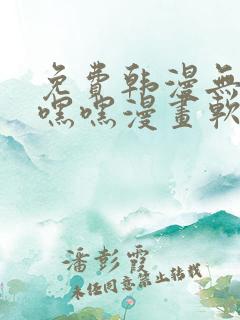 免費韩漫無
嘿嘿漫畫軟
潘彭霞
未经同意禁止转载